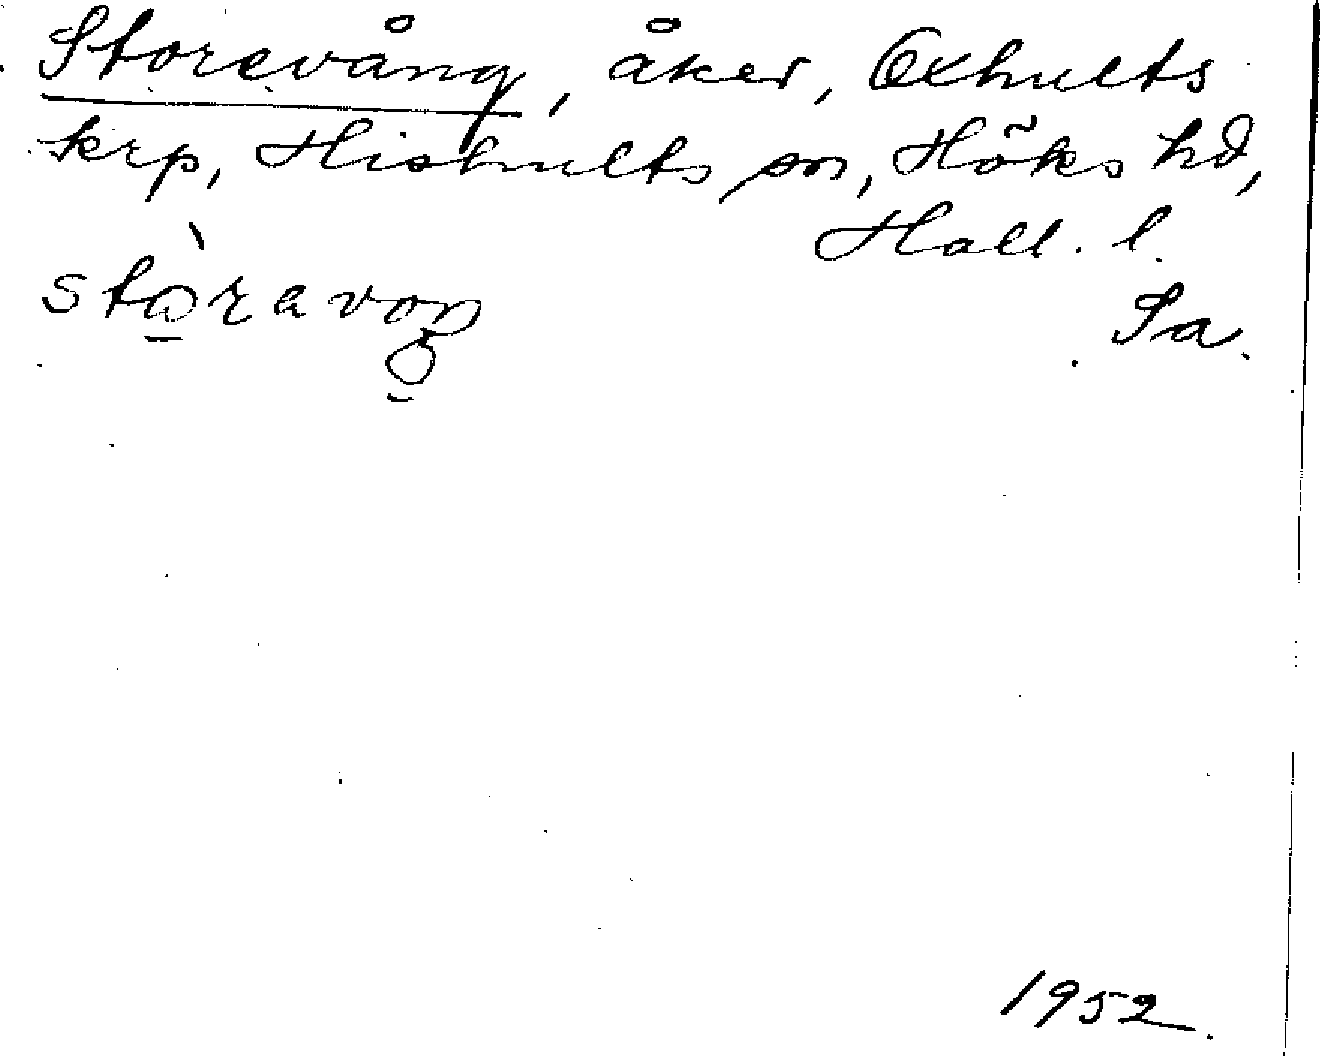 Storevång, åker, Oxhults
krp, Hishults sn, Höks hd,
Hall. l.
stòravoŋ
Sa.
1952.